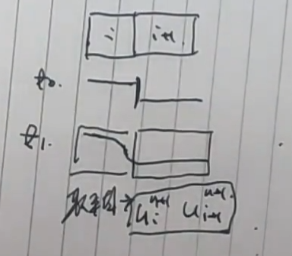 i i+1
t₀.
t₁.
取平均→ uᵢⁿ⁺¹ uᵢ₊₁ⁿ⁺¹